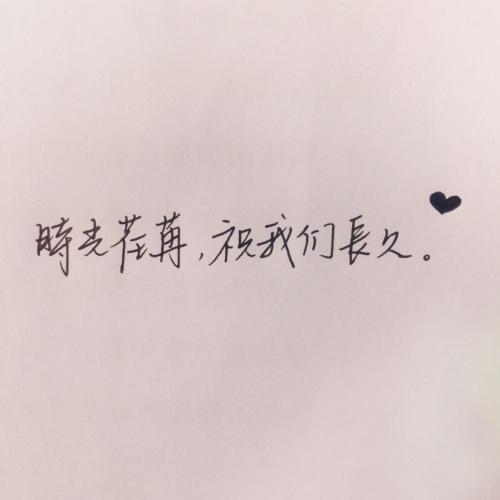 時光荏苒,祝我们長久。